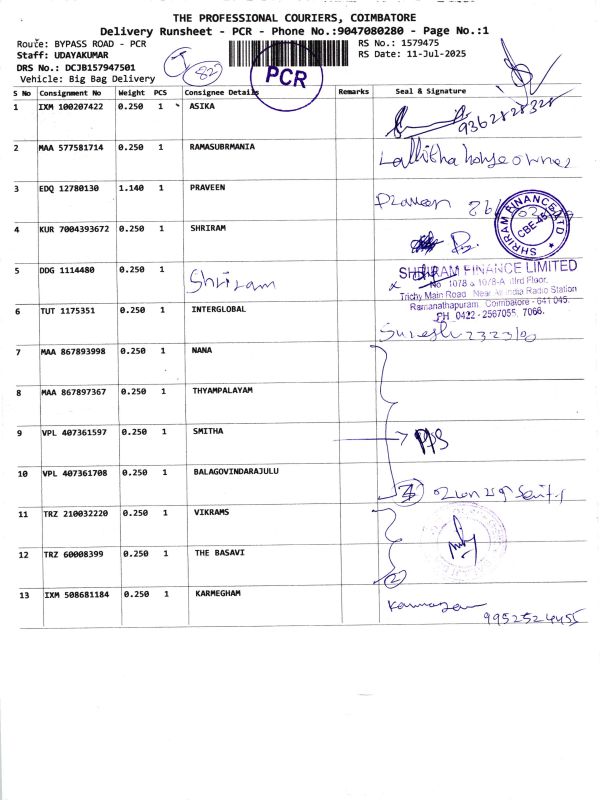 THE PROFESSIONAL COURIERS, COIMBATORE
Delivery Runsheet - PCR - Phone No.:9047080280 - Page No.:1
Route: BYPASS ROAD - PCR
RS No.: 1579475
Staff: UDAYAKUMAR
RS Date: 11-Jul-2025
DRS No.: DCJB157947501
Vehicle: Big Bag Delivery
82
PCR
S No Consignment No Weight PCS Consignee Details Remarks Seal & Signature
1 IXM 100207422 0.250 1 ASIKA
9362828328
2 MAA 577581714 0.250 1 RAMASUBRMANIA
Lallitha house owner
3 EDQ 12780130 1.140 1 PRAVEEN
Praveen
SHRIRAM FINANCE LTD
CBE-45
4 KUR 7004393672 0.250 1 SHRIRAM
5 DDG 1114480 0.250 1 Shriram
SHRIRAM FINANCE LIMITED
No 1078 & 1078-A IIIrd Floor,
Trichy Main Road, Near All India Radio Station
Ramanathapuram, Coimbatore - 641 045.
PH 0422 - 2567055, 7066.
6 TUT 1175351 0.250 1 INTERGLOBAL
Suresh
7 MAA 867893998 0.250 1 NANA
8 MAA 867897367 0.250 1 THYAMPALAYAM
9 VPL 407361597 0.250 1 SMITHA
10 VPL 407361708 0.250 1 BALAGOVINDARAJULU
11 TRZ 210032220 0.250 1 VIKRAMS
12 TRZ 60008399 0.250 1 THE BASAVI
2
13 IXM 508681184 0.250 1 KARMEGHAM
9952524455